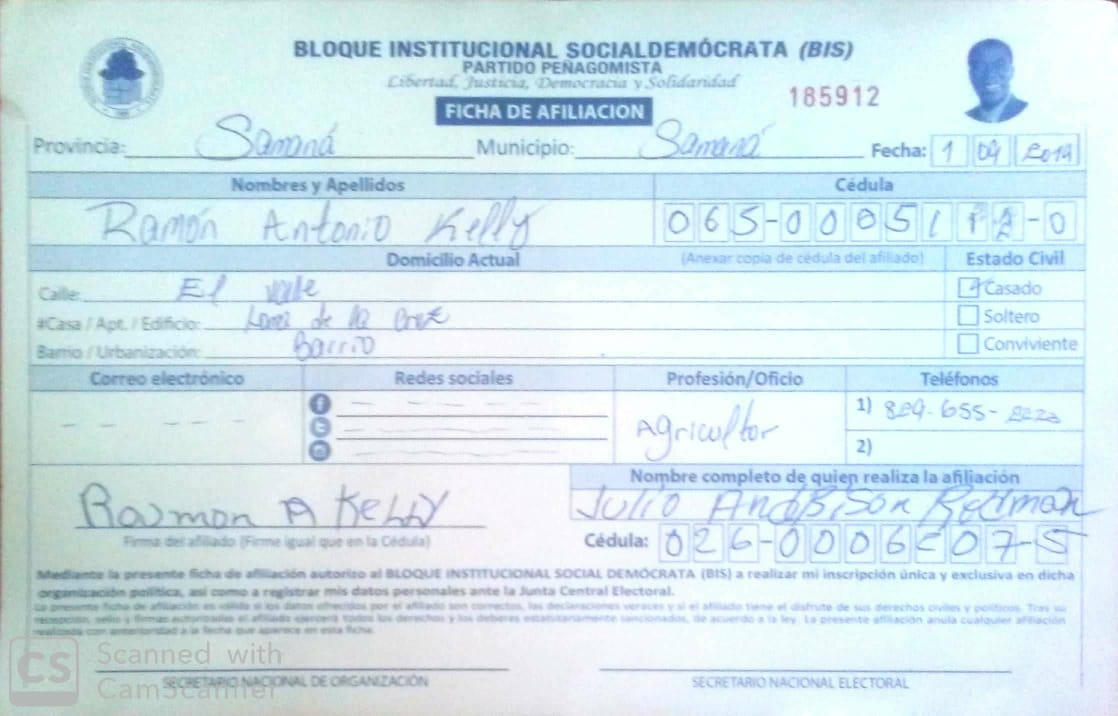 BLOQUE INSTITUCIONAL SOCIALDEMÓCRATA (BIS)
PARTIDO PEÑAGOMISTA
Libertad, Justicia, Democracia y Solidaridad
185912
FICHA DE AFILIACION
Provincia: Samaná Municipio: Samaná Fecha: 1 09 2019
Nombres y Apellidos Cédula
Ramón Antonio Kelly 065-0005112-0
Domicilio Actual (Anexar copia de cédula del afiliado) Estado Civil
Calle: El valle Casado
#Casa / Apt. / Edificio: Loma de la Cruz Soltero
Barrio / Urbanización: Barrio Conviviente
Correo electrónico Redes sociales Profesión/Oficio Teléfonos
Agricultor 1) 829-655-
2)
Nombre completo de quien realiza la afiliación
Ramon A Kelly Julio Anderson Redman
Firma del afiliado (Firme igual que en la Cédula) Cédula: 026-0006207-5
Mediante la presente ficha de afiliación autorizo al BLOQUE INSTITUCIONAL SOCIAL DEMÓCRATA (BIS) a realizar mi inscripción única y exclusiva en dicha
organización política, así como a registrar mis datos personales ante la Junta Central Electoral.
La presente ficha de afiliación es válida si los datos ofrecidos por el afiliado son correctos, las declaraciones veraces y si el afiliado tiene el disfrute de sus derechos civiles y políticos. Tras su
recepción, sello y firmas autorizadas el afiliado ejercerá todos los derechos y los deberes estatutariamente sancionados, de acuerdo a la ley. La presente afiliación anula cualquier afiliación
realizada con anterioridad a la fecha que aparece en esta ficha.
CS Scanned with
CamScanner
SECRETARIO NACIONAL DE ORGANIZACIÓN SECRETARIO NACIONAL ELECTORAL